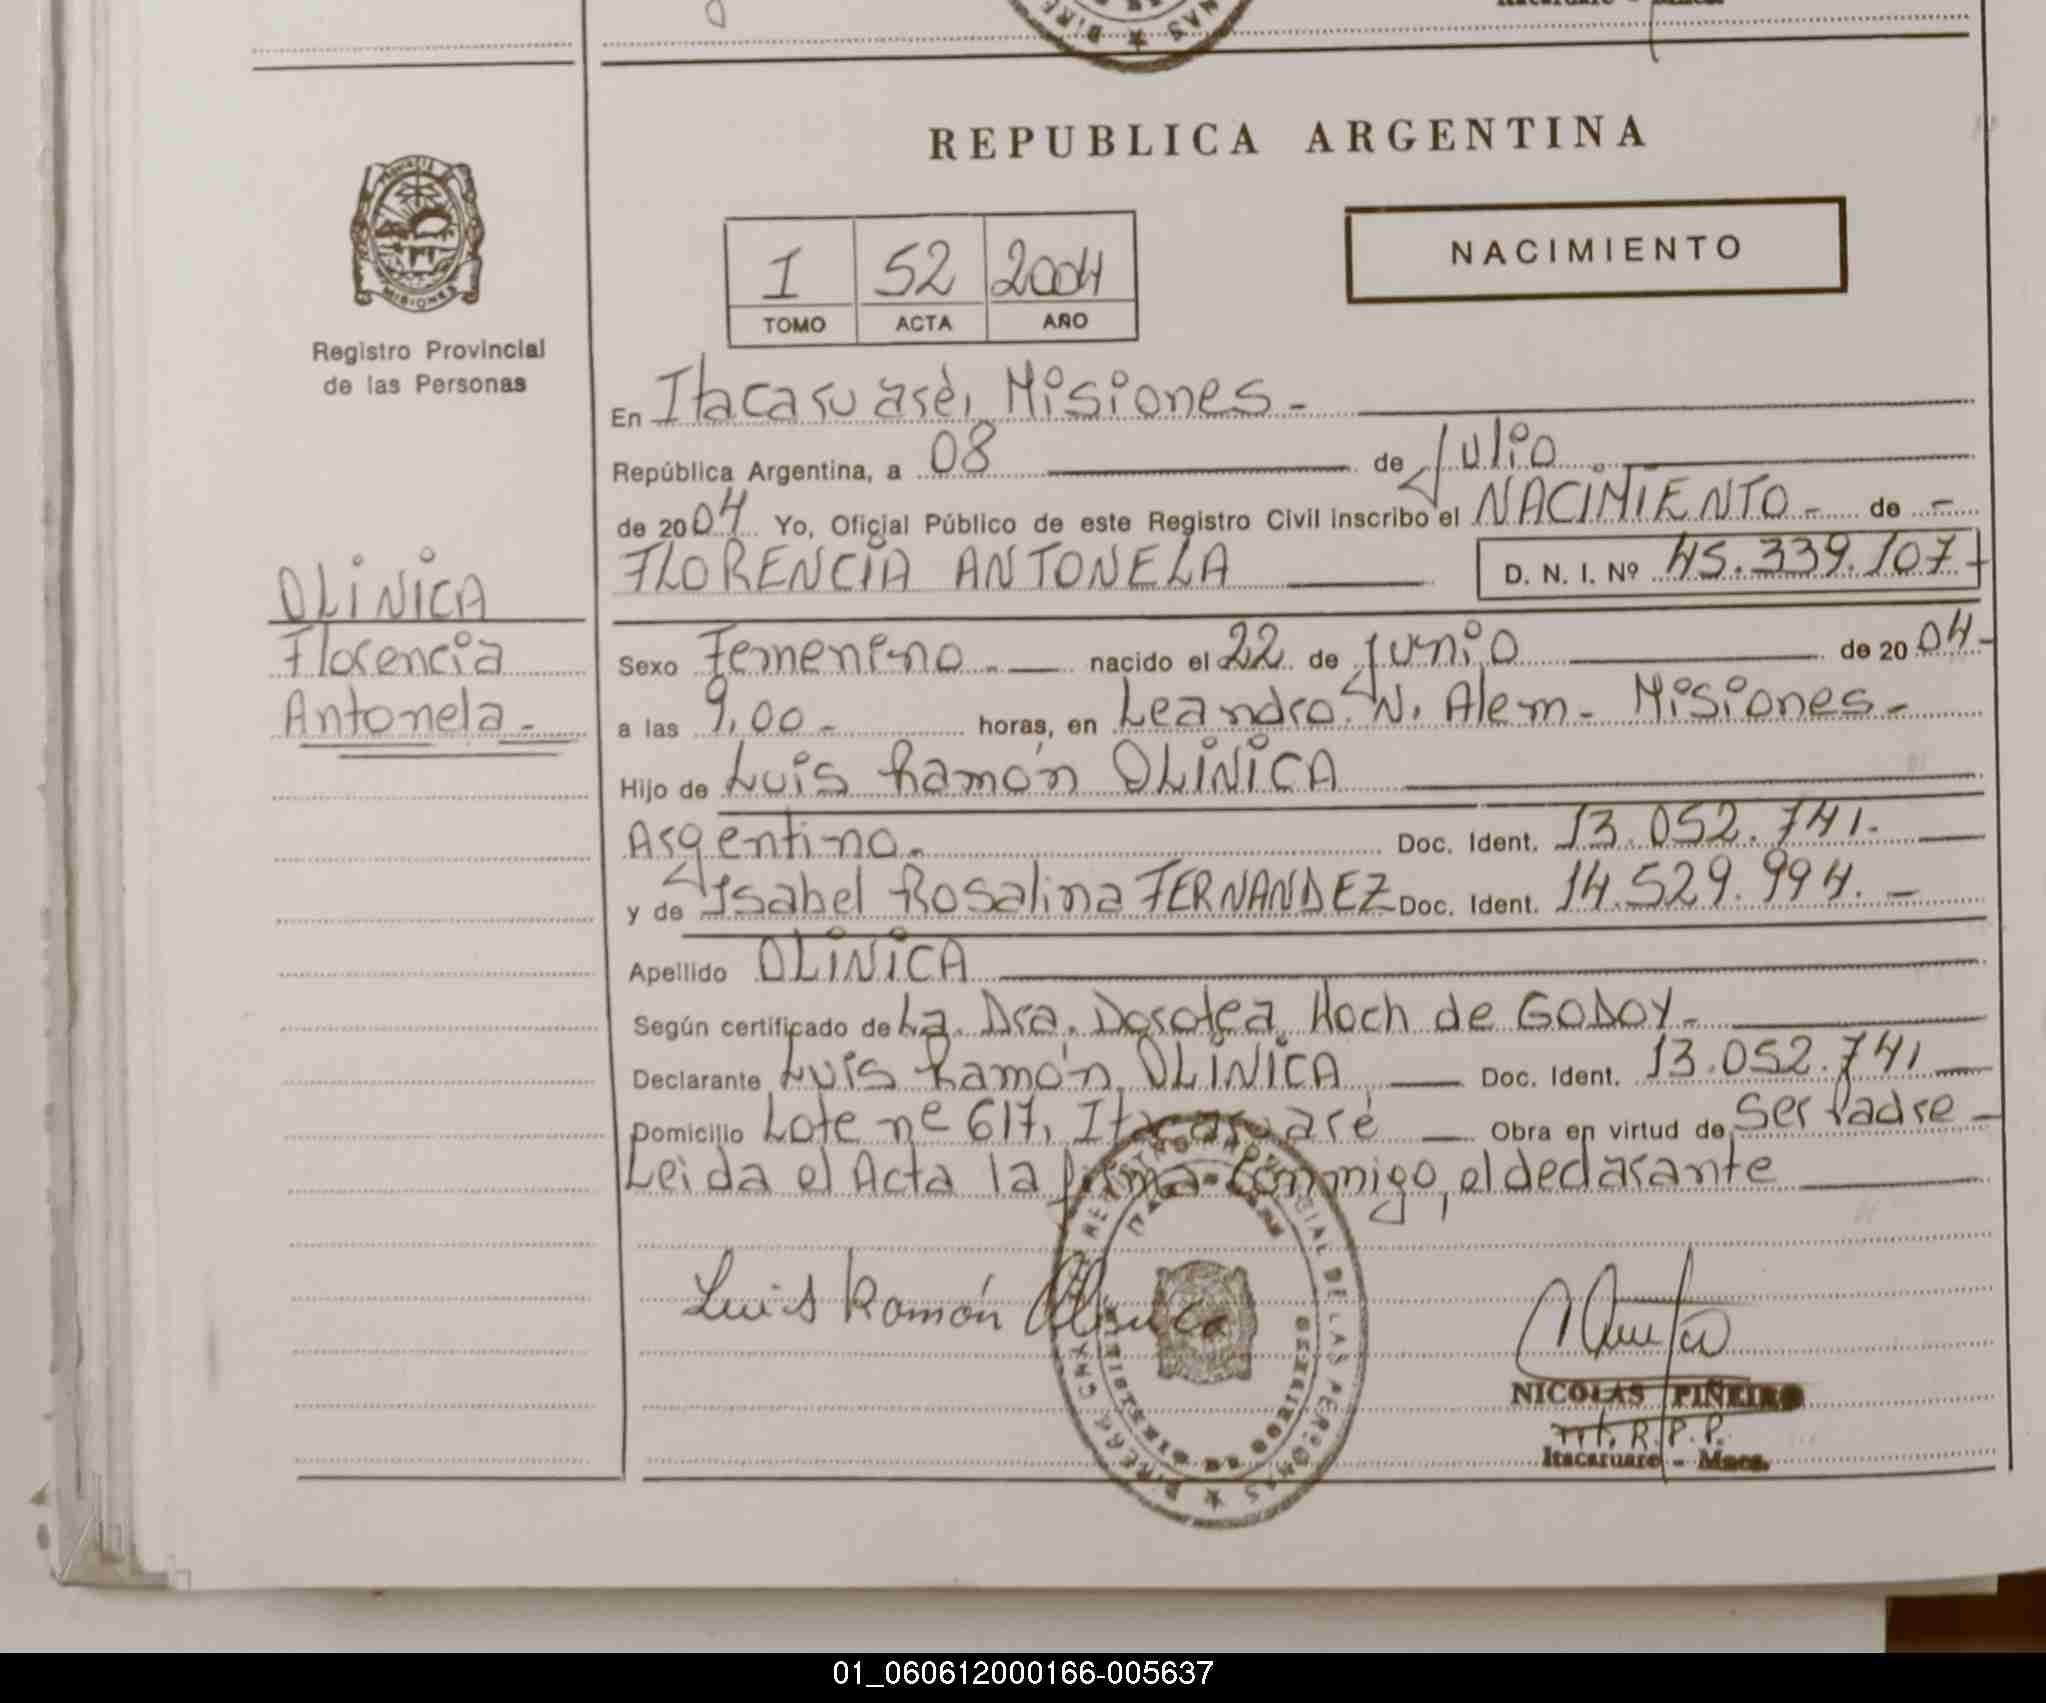 REPUBLICA ARGENTINA
NACIMIENTO
PROVINCIA
MISIONES
Registro Provincial
de las Personas
I 52 2004
TOMO ACTA AÑO
En Itacaruaré, Misiones-
República Argentina, a 08 de Julio
de 2004 Yo, Oficial Público de este Registro Civil inscribo el NACIMIENTO- de -
FLORENCIA ANTONELA D. N. I. Nº 45.339.107-
OLINICA
Florencia
Antonela-
Sexo Femenino.- nacido el 22 de junio de 2004-
a las 9,00- horas, en Leandro. N. Alem- Misiones-
Hijo de Luis Ramón OLINICA
Argentino- Doc. Ident. 13.052.741-
y de Isabel Rosalina FERNANDEZ Doc. Ident. 14.529.994.-
Apellido OLINICA
Según certificado de La. Dra. Dorotea Hoch de GODOY-
Declarante Luis Ramón OLINICA Doc. Ident. 13.052.741
Domicilio Lote nº 617, Itacaruaré Obra en virtud de Ser Padre-
Leida el Acta la firma conmigo, el declarante
Luis Ramón Olinica
NICOLAS PIÑEIRO
R.P.P.
Itacaruare - Mnes.
01_060612000166-005637